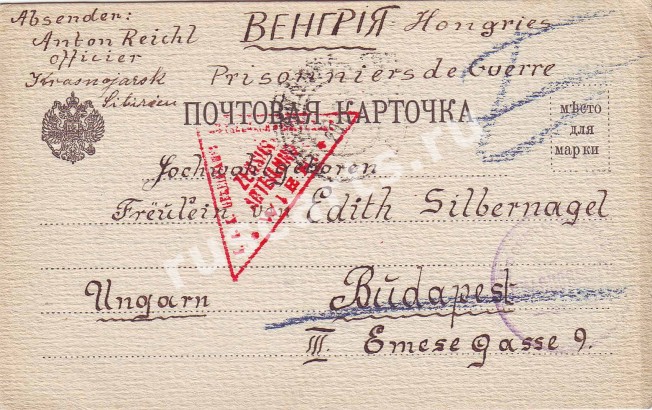 Absender:
Anton Reichl
Officier
Krasnojarsk
Sibirien
ВЕНГРІЯ - Hongries
Prisonniers de Guerre
ПОЧТОВАЯ КАРТОЧКА
мѣсто
для
марки
Hochwohlgeboren
Fräulein von Edith Silbernagel
Ungarn Budapest
III. Emese gasse 9.